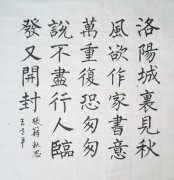 洛陽城裏見秋
風欲作家書意
萬重復恐匆匆
說不盡行人臨
發又開封
張籍秋思